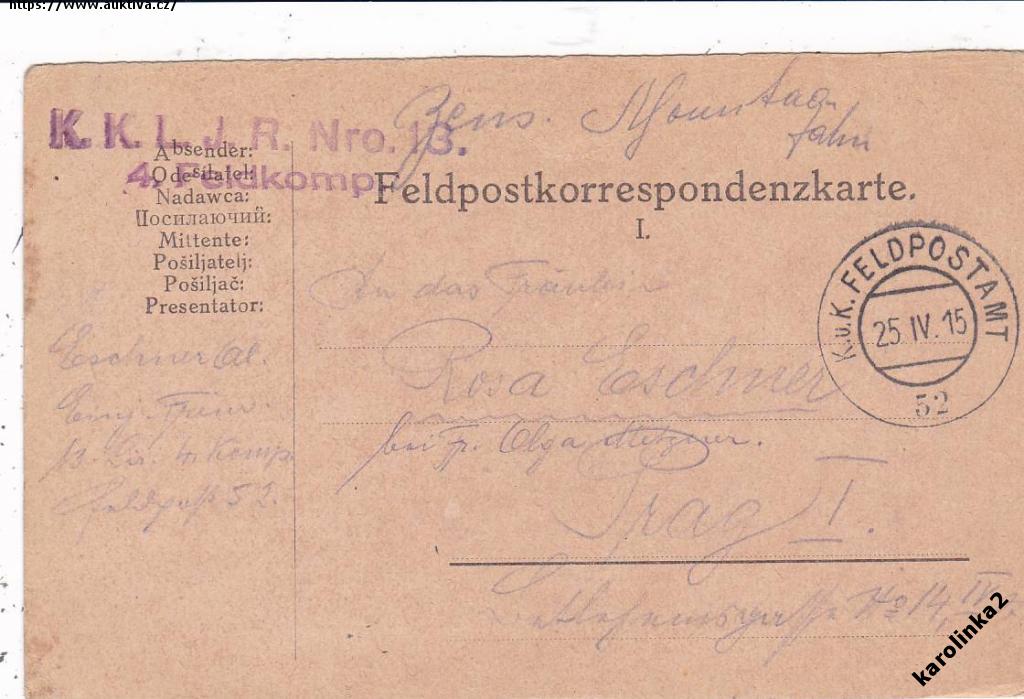 https://www.auktiva.cz/
K. K. L. J. R. Nro. 13.
4. Feldkomp.
Zens.
Absender:
Odesílatel:
Nadawca:
Посилаючий:
Mittente:
Pošiljatelj:
Pošiljač:
Presentator:
Feldpostkorrespondenzkarte.
I.
K.u.K. FELDPOSTAMT
25 IV. 15
52
An das Fräulein
Rosa Eschner
bei Fr. Olga
Prag I.
Betlehemsgasse No 14,
Eschner Al.
Einj. Freiw.
13. 4. Komp.
Feldpost 52.
karolinka2